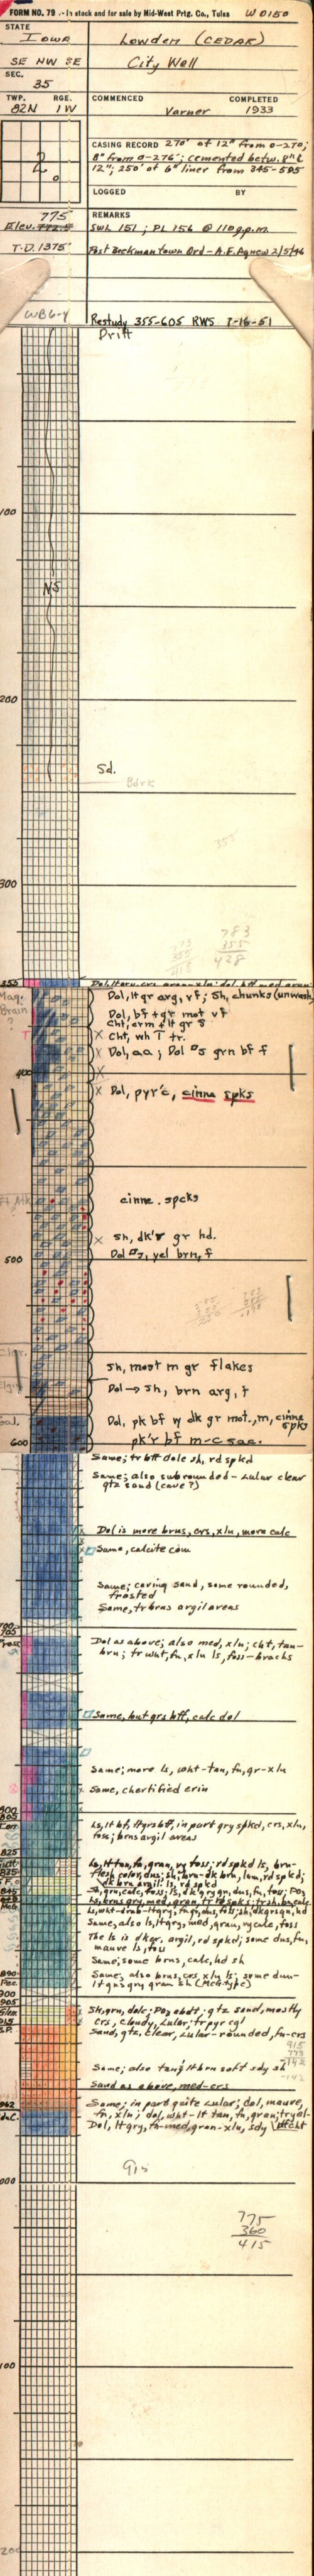 FORM NO. 79 - In stock and for sale by Mid-West Prtg. Co., Tulsa W0150
STATE
Iowa
Lowden (CEDAR)
SE NW SE
City Well
SEC.
35
TWP. RGE.
82N 1W
COMMENCED COMPLETED
Varner 1933
CASING RECORD 270' of 12" from 0-270;
8" from 0-276'; cemented betw. 8" &
12"; 250' of 6" liner from 345-595
LOGGED BY
775
Elev. 772.5
REMARKS
SWL 151; PL 156 @ 110 g.p.m.
T.D. 1375'
Post Beekmantown Ord - A.F. Agnew 2/5/46
Restudy 355-605 RWS 7-16-51
Drift
100
NS
200
Sd.
Bdrk
353
300
783
355
428
355
Maq.
Brain
?
Dol, lt gr arg, vf; Sh, chunks (unwash
Dol, bf + gr mot vf
Cht, crm + lt gr S
Cht, wh T tr.
Dol, aa; Dol grn bf f
400
Dol, pyr'c, cinne spks
cinne. spcks
sh, dk'r gr hd.
Dol, yel brn, f
500
Sh, most m gr flakes
Dol → sh, brn arg, f
Dol, pk bf w dk gr mot., m, cinne
spks
pk'r bf m-c sac.
600
Same; tr bff dolc sh, rd spkd
Same; also subrounded - Lular clear
qtz sand (cave?)
Dol is more brns, crs, xln, more calc
Same, calcite com
Same; caving sand, some rounded,
frosted
Same, tr brns argil areas
700
705
Pross
Dol as above; also med, xln; cht, tan-
brn; tr wht, fn, xln ls, foss - brachs
Same, but grs bff, calc dol
Same; more ls, wht-tan, fn, gr-xln
Same, chertified crin
800
805
Ls, lt bf, ltgrs bff, in part gry spkd, crs, xln,
foss; brns argil areas
825
Ls, lt tan, fn, gran, vy foss; rd spkd ls, brn-
845
Ls, wht-drab-ltgry, fn, dns, foss; sh, dk grsgn, hd
Same, also ls, ltgry, med, gran, vy calc, foss
The ls is dker, argil, rd spkd; some dns, fn,
mauve ls, foss
Same; some brns, calc, hd sh
890
Pec.
Same; also brns, crs xln ls; some dns-
lt gns gry gran sh (McG type)
900
905
Glen.
915
S.P.
Sh, grn, dolc; Pog abdt; qtz sand, mostly
crs, cloudy, Lular; tr pyr cgl
Sand, qtz, clear, Lular-rounded, fn-crs
915
775
-142
Same; also tang lt brn soft sdy sh
Sand as above, med-crs
962
Same; in part quite Lular; dol, mauve,
fn, xln; dol, wht-lt tan, fn, gran; tr yel-
Dol, ltgry, fn-med, gran-xln, sdy
000
775
360
415
100
200